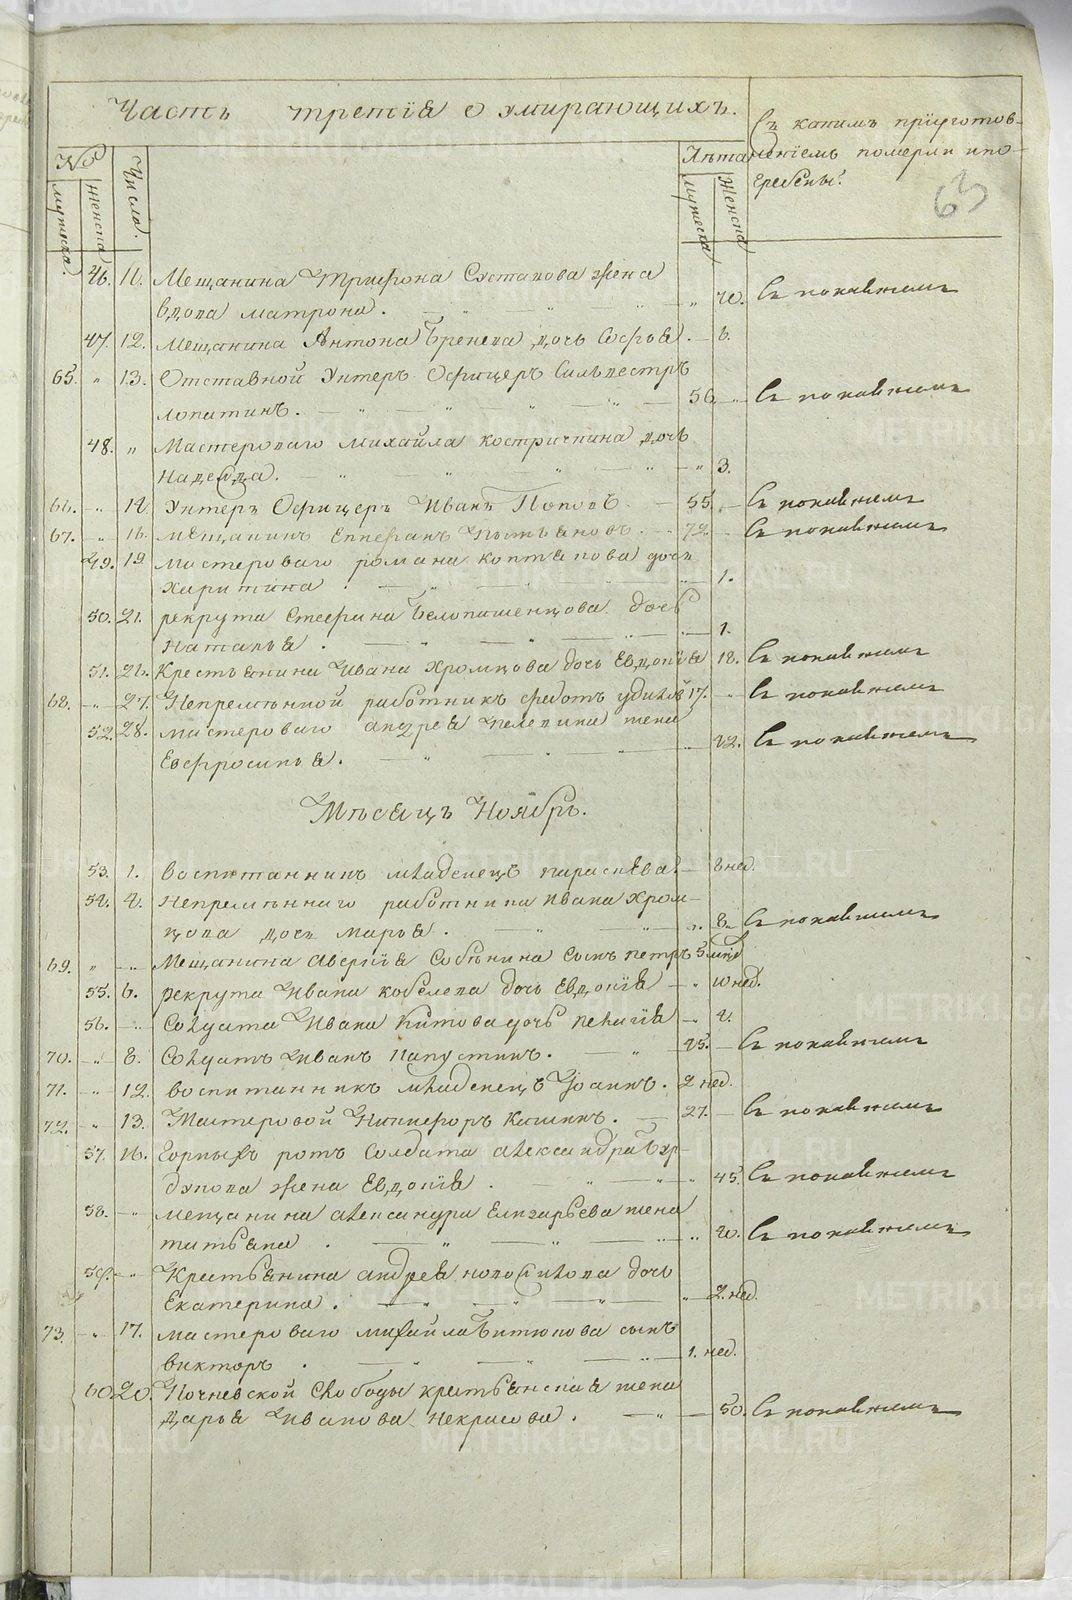 Часть третія о умирающихъ.
Съ какимъ пріуготов-
леніемъ померли и по-
гребены?
63
№
Числа.
Лѣта
мужеска.
женска
мужеска
женска
46. 11. Мещанина Трифона Остапова жена
вдова матрона. 70. Съ покаяніемъ
47. 12. Мещанина Антона дочь Софья. 6.
65. " 13. Отставной Унтеръ Офицеръ Сильвестръ
лопатинъ. 56. Съ покаяніемъ
48. " Мастероваго михайла костричкина дочь
Надежда. 3.
66. " 14. Унтеръ Офицеръ Иванъ Поповъ 55. Съ покаяніемъ
67. " 16. мѣщанинъ Епифанъ 72 Съ покаяніемъ
49. 19 мастероваго романа коптякова дочь
Харитина 1.
50. 21. рекрута Стефана Белопашенцова дочь
Наталья. 1.
51. 26. Крестьянина Ивана Хромцова дочь Евдокія 18. Съ покаяніемъ
68. 27. Непремѣнной работникъ федотъ удиловъ 17. Съ покаяніемъ
52. 28. мастероваго андрея пелевина жена
Евфросинья. 72. Съ покаяніемъ
Мѣсяцъ Ноябрь.
53. 1. воспитанникъ младенецъ параскева. 8 нед.
54. 4. Непремѣннаго работника ивана хром-
цова дочь марья. 8. Съ покаяніемъ
69. " Мещанина аверкія Собянина сынъ петръ 5
55. 6. рекрута Ивана кобелева дочь Евдокія 10 нед.
56. Солдата Ивана Китова дочь пелагія 4.
70. " 8. Солдатъ Иванъ Капустинъ. 25. Съ покаяніемъ
71. " 12. воспитанникъ младенецъ Іоаннъ. 2 нед.
72. " 13. Мастеровой Никифоръ Кашинъ. 27. Съ покаяніемъ
57. 16. Горныхъ ротъ Солдата александра
жена Евдокія. 45. Съ покаяніемъ
58. " мещанина александра Елизарьева жена
татьяна. 70. Съ покаяніемъ
59. " Крестьянина андрея новосилова дочь
Екатерина. 2. нед.
73. " 17. мастероваго михайла Битюкова сынъ
викторъ. 1. нед.
60. 20. Почневской слободы крестьянская жена
Дарья Иванова некрасова. 50. Съ покаяніемъ
METRIKI.GASO-URAL.RU